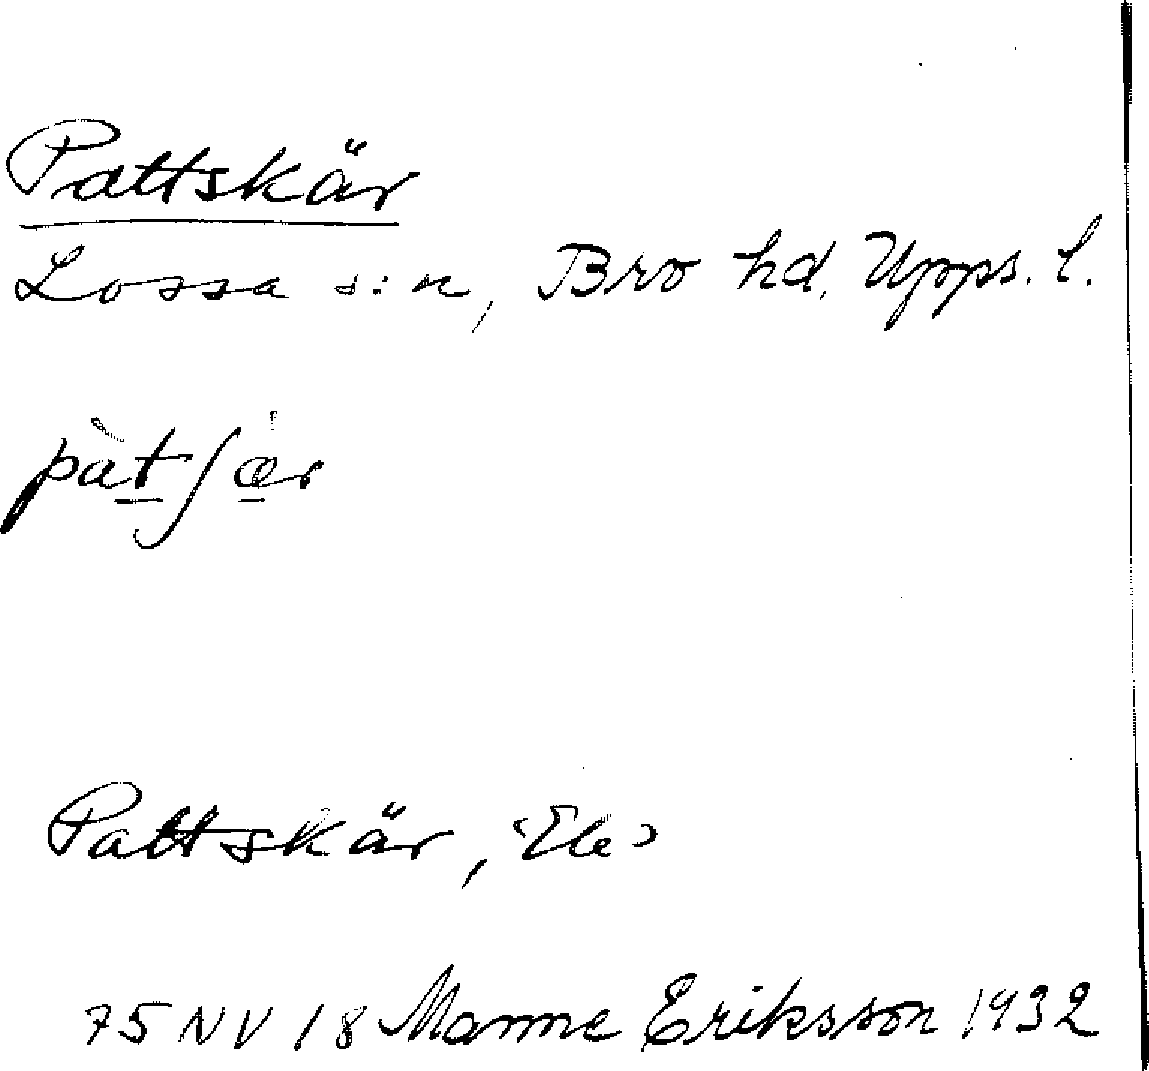 Pattskär
Lossa s:n, Bro hd, Upps. l.
pàt∫æ̀r
Pattskär,
75 NV 18 Manne Eriksson 1932